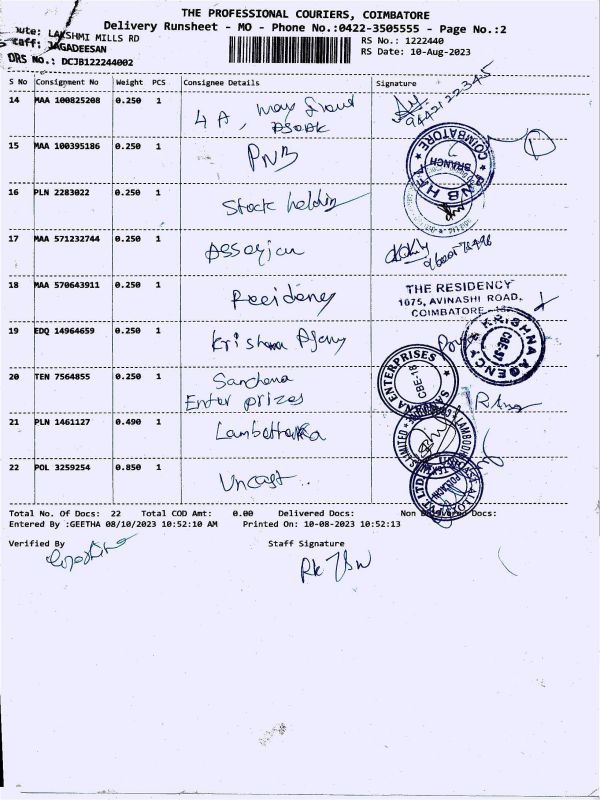 THE PROFESSIONAL COURIERS, COIMBATORE
Delivery Runsheet - MO - Phone No.:0422-3505555 - Page No.:2
oute: LAKSHMI MILLS RD
taff: JAGADEESAN
DRS No.: DCJB122244002
RS No.: 1222440
RS Date: 10-Aug-2023
S No Consignment No Weight PCS Consignee Details Signature
14 MAA 100825208 0.250 1 4 A,
15 MAA 100395186 0.250 1 PNB
COIMBATORE BRANCH PNB HFL
16 PLN 2283022 0.250 1 Stock holding
17 MAA 571232744 0.250 1
18 MAA 570643911 0.250 1 Residency
THE RESIDENCY
1075, AVINASHI ROAD,
COIMBATORE
19 EDQ 14964659 0.250 1 Krishna Agency
KRISHNA AGENCY CBE-37
20 TEN 7564855 0.250 1 Sanchana
Enter prizes
ENTERPRISES CBE-18
21 PLN 1461127 0.490 1
22 POL 3259254 0.850 1
Total No. Of Docs: 22 Total COD Amt: 0.00 Delivered Docs: Non Delivered Docs:
Entered By :GEETHA 08/10/2023 10:52:10 AM Printed On: 10-08-2023 10:52:13
Verified By Staff Signature